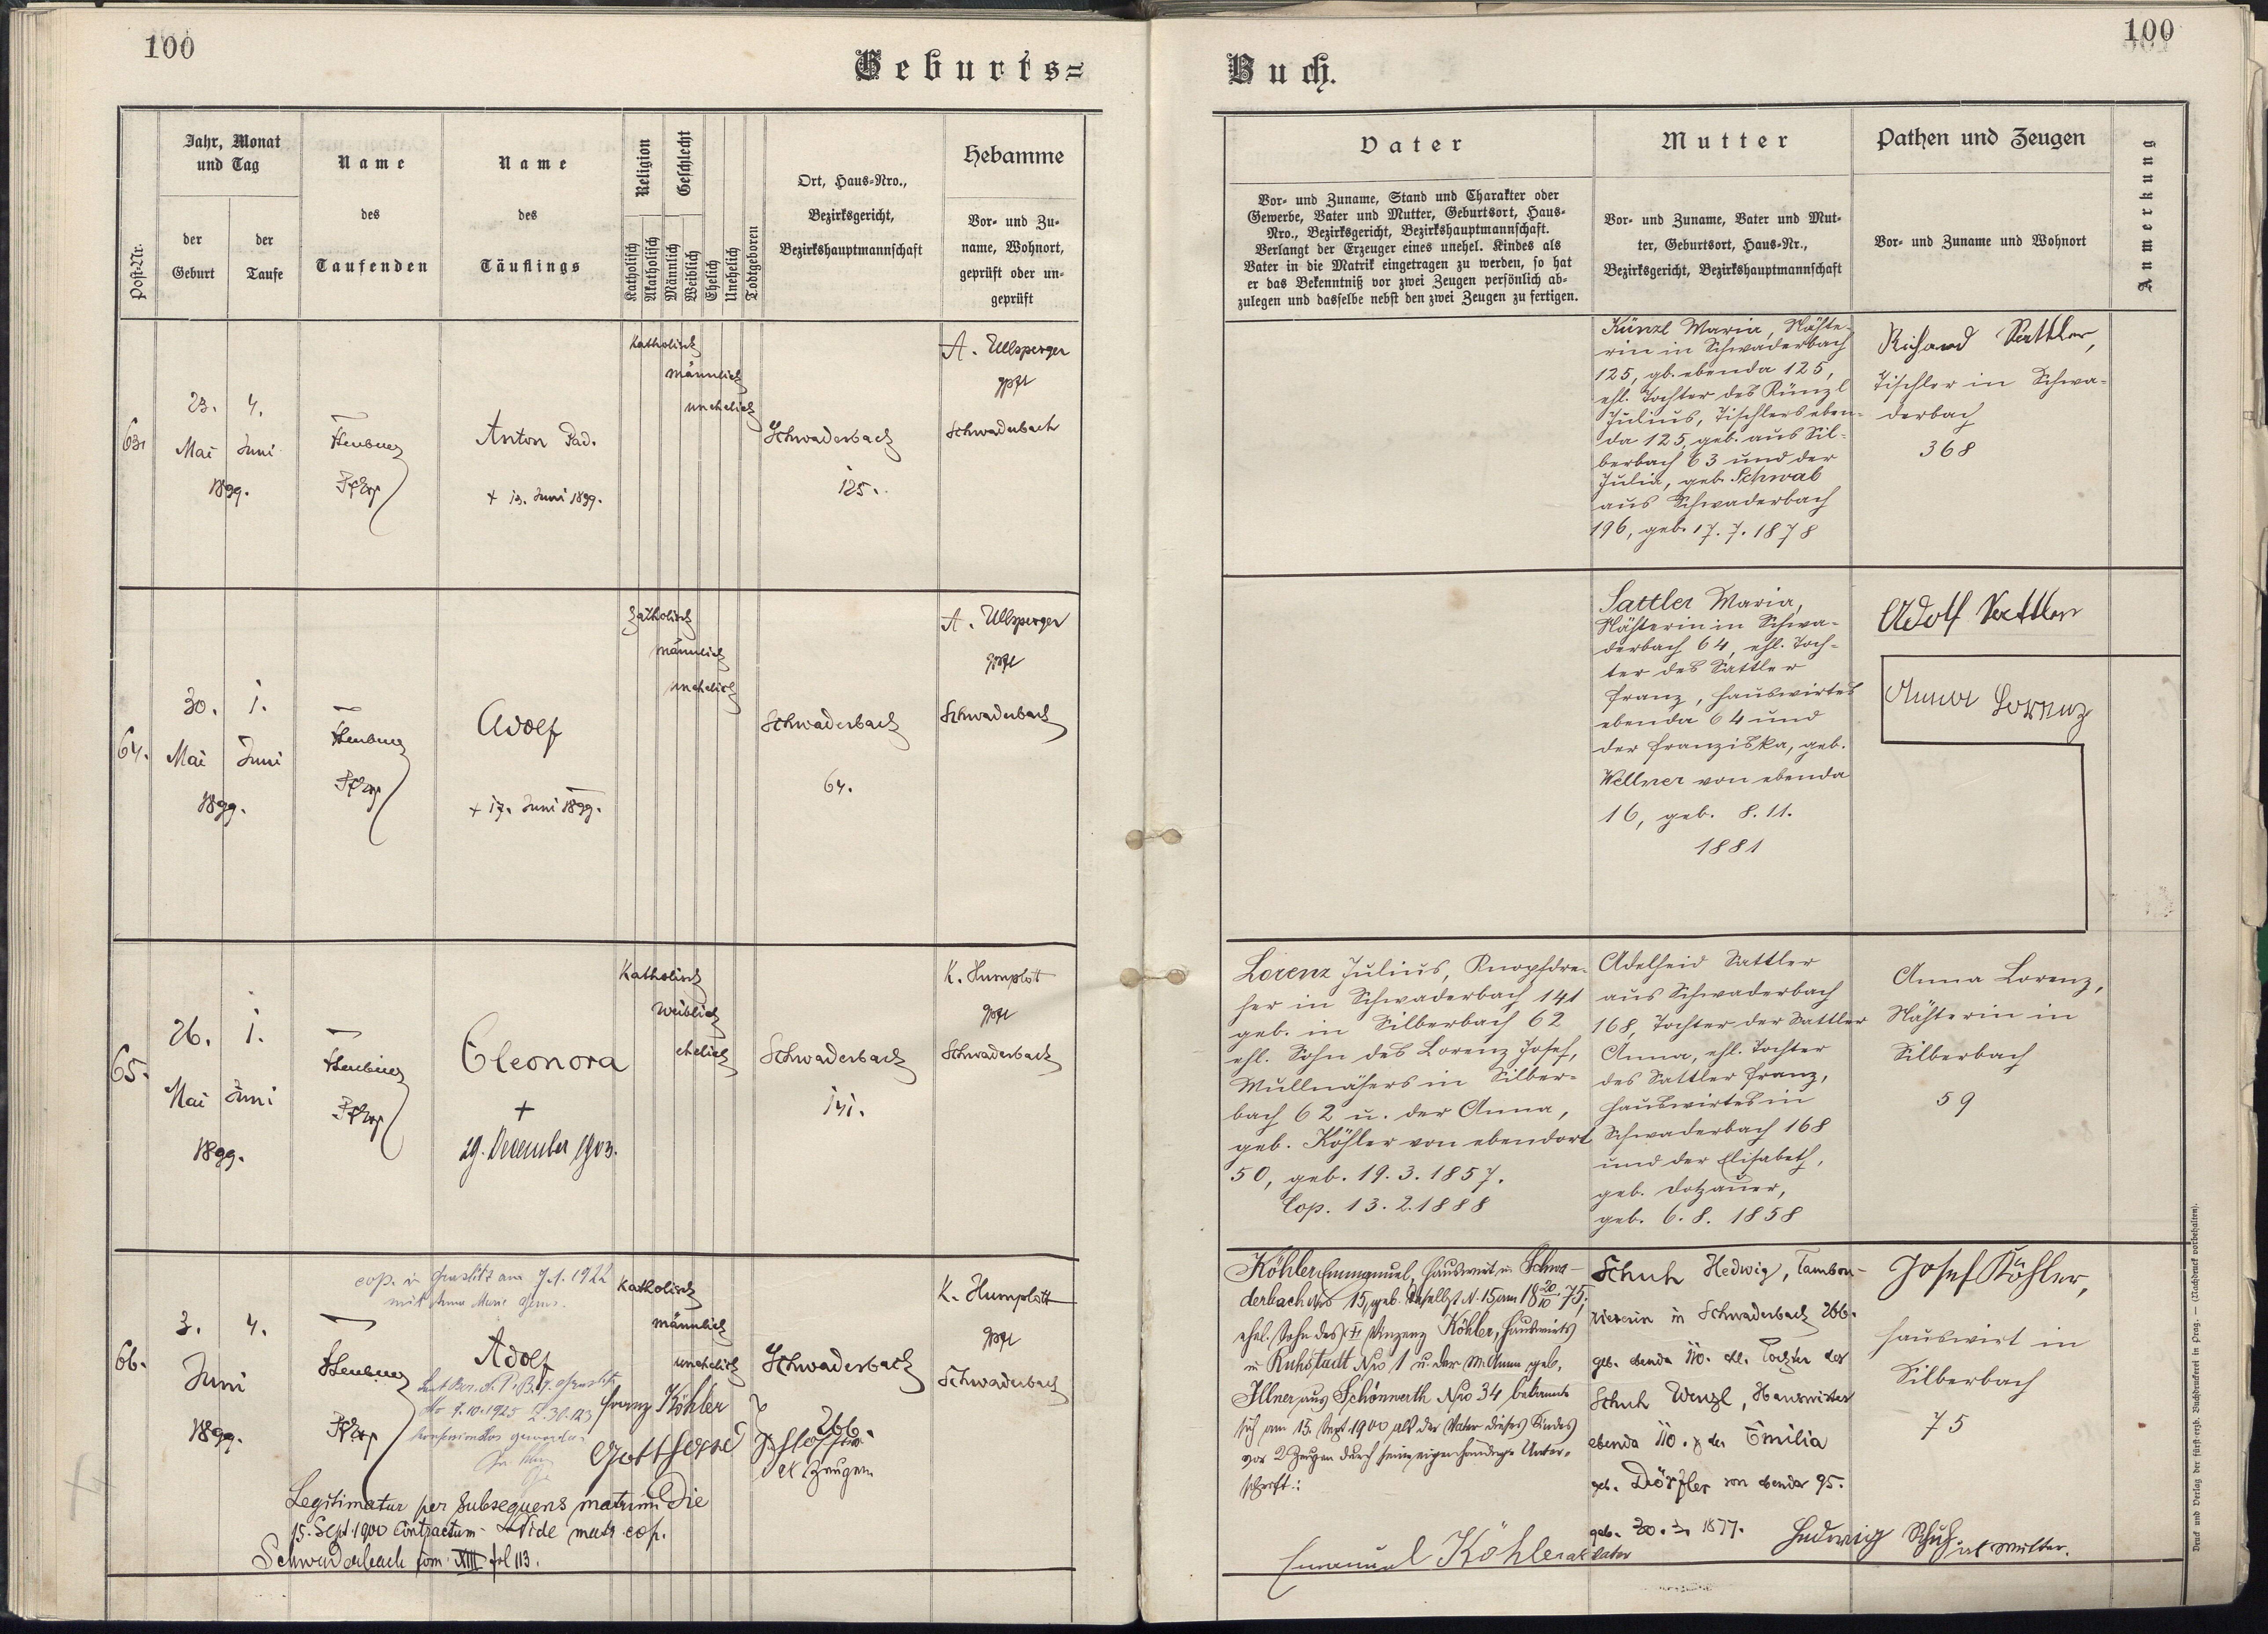 100
Geburts=
Post-Nr.
Jahr, Monat
und Tag
der
Geburt
der
Taufe
Name
des
Taufenden
Name
des
Täuflings
Religion
Katholisch
Akatholisch
Geschlecht
Männlich
Weiblich
Ehelich
Unehelich
Todtgeboren
Ort, Haus-Nro.,
Bezirksgericht,
Bezirkshauptmannschaft
Hebamme
Vor- und Zu-
name, Wohnort,
geprüft oder un-
geprüft
63.
23. 4.
Mai Juni
1899.
Anton Pad.
+ 13. Juni 1899.
Katholisch
männlich
unehelich
Schwaderbach
125.
A. Ullsperger
gpft
Schwaderbach
64.
30. 1.
Mai Juni
1899.
Adolf
+ 17. Juni 1899.
Katholisch
männlich
unehelich
Schwaderbach
64.
A. Ullsperger
gpft
Schwaderbach
65.
26. 1.
Mai Juni
1899.
Eleonora
+
29. December 1903.
Katholisch
weiblich
ehelich
Schwaderbach
141.
K. Humplott
gpft
Schwaderbach
cop. in Graslitz am 7.1.1922
mit Anna Marie
66.
3. 4.
Juni
1899.
Adolf
Katholisch
männlich
unehelich
Schwaderbach
266.
K. Humplott
gpft
Schwaderbach
Franz Köhler
als Zeugen
Legitimatur per subsequens matrim die
15. Sept. 1900 contractum. Vide matr. cop.
Schwaderbach tom. XIII fol 113.
100
Buch.
Vater
Vor- und Zuname, Stand und Charakter oder
Gewerbe, Vater und Mutter, Geburtsort, Haus-
Nro., Bezirksgericht, Bezirkshauptmannschaft.
Verlangt der Erzeuger eines unehel. Kindes als
Vater in die Matrik eingetragen zu werden, so hat
er das Bekenntniß vor zwei Zeugen persönlich ab-
zulegen und dasselbe nebst den zwei Zeugen zu fertigen.
Mutter
Vor- und Zuname, Vater und Mut-
ter, Geburtsort, Haus-Nr.,
Bezirksgericht, Bezirkshauptmannschaft
Pathen und Zeugen
Vor- und Zuname und Wohnort
Anmerkung
Künzl Maria, Nähte-
rin in Schwaderbach
125, gb. ebenda 125,
ehl. Tochter des Künzl
Julius, Tischlers eben-
da 125, geb. aus Sil-
berbach 63 und der
Julia, geb. Schwab
aus Schwaderbach
196, geb. 17.7.1878
Richard Sattler,
Tischler in Schwa-
derbach
368
Sattler Maria,
Nähterin in Schwa-
derbach 64, ehl. Toch-
ter des Sattler
Franz, Hauswirtes
ebenda 64 und
der Franziska, geb.
Wellner von ebenda
16, geb. 8.11.
1881
Adolf Sattler
Anna Lorenz
Lorenz Julius, Knopfdre-
her in Schwaderbach 141
geb. in Silberbach 62
ehl. Sohn des Lorenz Josef,
Mullnähers in Silber-
bach 62 u. der Anna,
geb. Köhler von ebendort
50, geb. 19.3.1857.
Cop. 13.2.1888
Adelheid Sattler
aus Schwaderbach
168, Tochter der Sattler
Anna, ehl. Tochter
des Sattler Franz,
Hauswirtes in
Schwaderbach 168
und der Elisabeth,
geb. Dotzauer,
geb. 6.8.1858
Anna Lorenz,
Nähterin in
Silberbach
59
Köhler Emmanuel, Hauswirt in Schwa-
derbach Nro 15, geb. daselbst N. 15 am 18 20/10 75,
ehel. Sohn des Vinzenz Köhler, Hauswirts
in Ruhstadt Nro 1 u. der M. Anna geb.
Illner aus Schönwerth Nro 34 bekannte
sich am 15. Sept. 1900 als der Vater dieses Kindes
vor 2 Zeugen durch seine eigenhändige Unter-
schrift:
Emanuel Köhler als Vater
Schuh Hedwig, Tambou-
riererin in Schwaderbach 266.
geb. ebenda 110. ehl. Tochter des
Schuh Wenzl, Hauswirtes
ebenda 110. & der Emilia
geb. Dörfler von ebenda 95.
Hedwig Schuh als Mutter.
Josef Köhler,
Hauswirt in
Silberbach
75
Druck und Verlag der fürst-erzb. Buchdruckerei in Prag. — (Nachdruck vorbehalten).